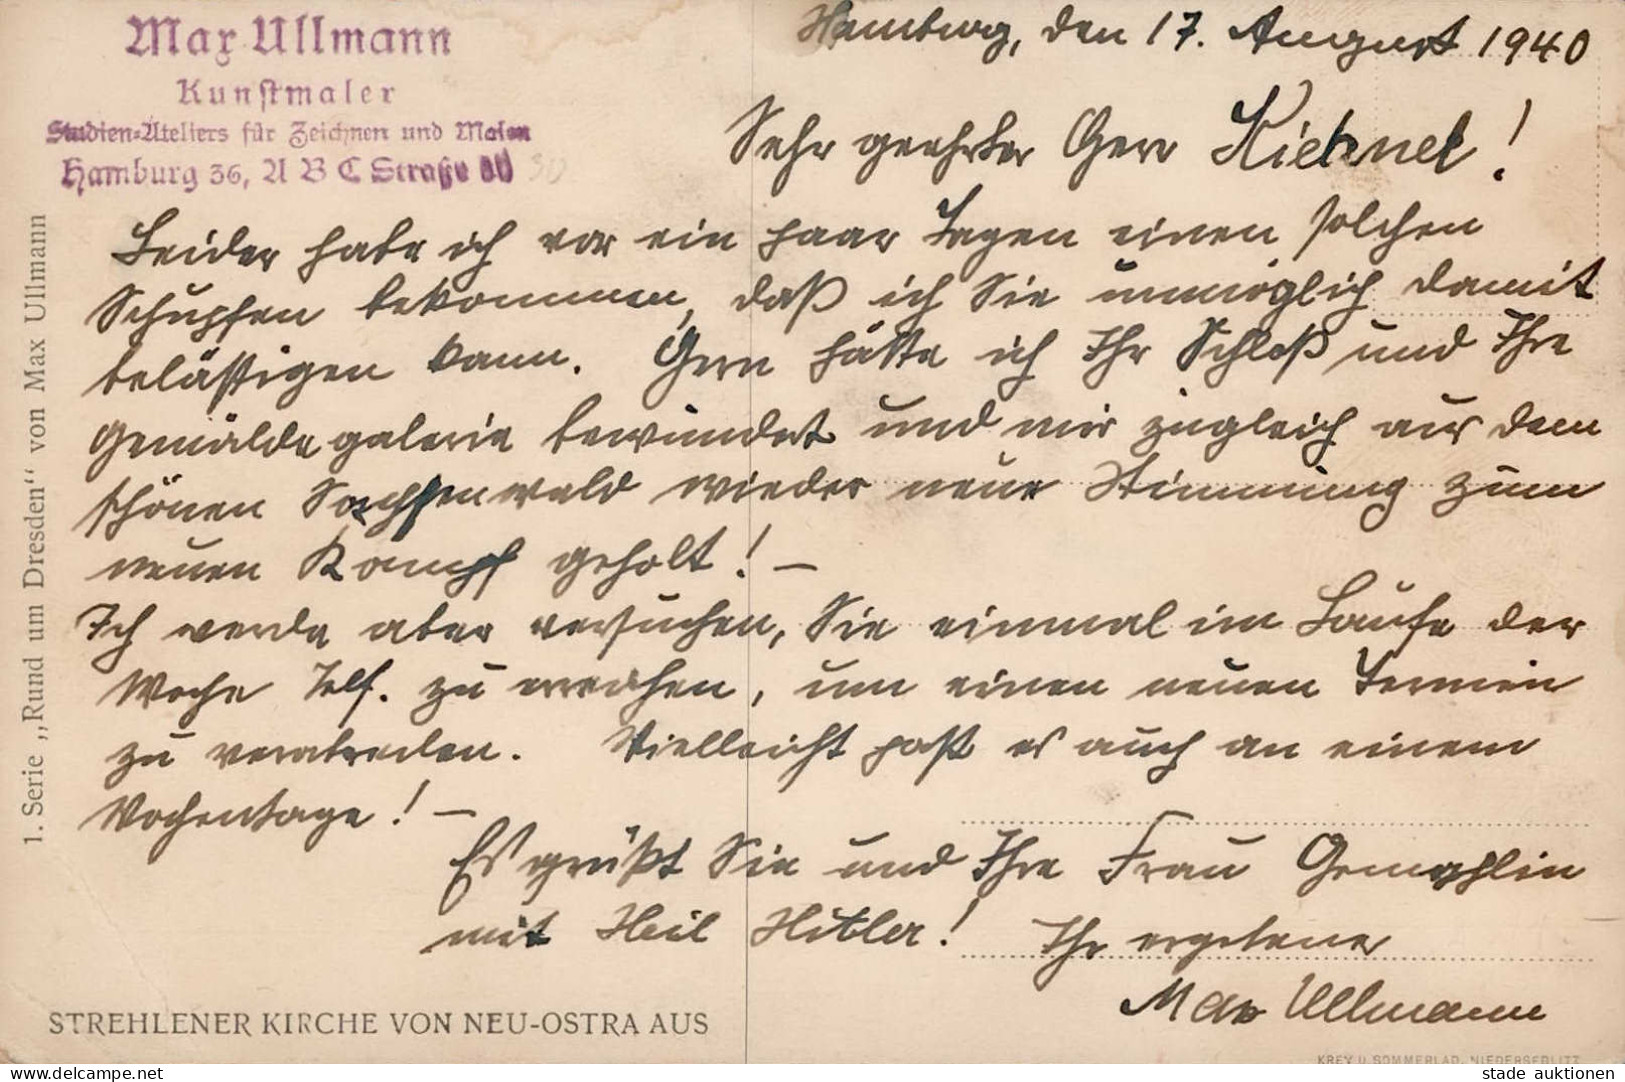 Max Ullmann
Kunstmaler
Studien-Ateliers für Zeichnen und Malen
Hamburg 36, A B C Straße
Hamburg, den 17. August 1940
Sehr geehrter Herr Kiehnel!
Leider habe ich vor ein paar Tagen einen solchen
Schupfen bekommen, daß ich Sie unmöglich damit
belästigen kann. Gern hätte ich Ihr Schloß und Ihre
Gemäldegalerie bewundert und mir zugleich aus dem
schönen Sachsenwald wieder neue Stimmung zum
neuen Kampf geholt! —
Ich werde aber versuchen, Sie einmal im Laufe der
Woche Telf. zu erreichen, um einen neuen Termin
zu verabreden. Vielleicht paßt es auch an einem
Wochentage! —
Es grüßt Sie und Ihre Frau Gemahlin
mit Heil Hitler! Ihr ergebener
Max Ullmann
1. Serie „Rund um Dresden“ von Max Ullmann
STREHLENER KIRCHE VON NEU-OSTRA AUS
KREY U. SOMMERLAD, NIEDERSEDLITZ
www.delcampe.net
stade auktionen